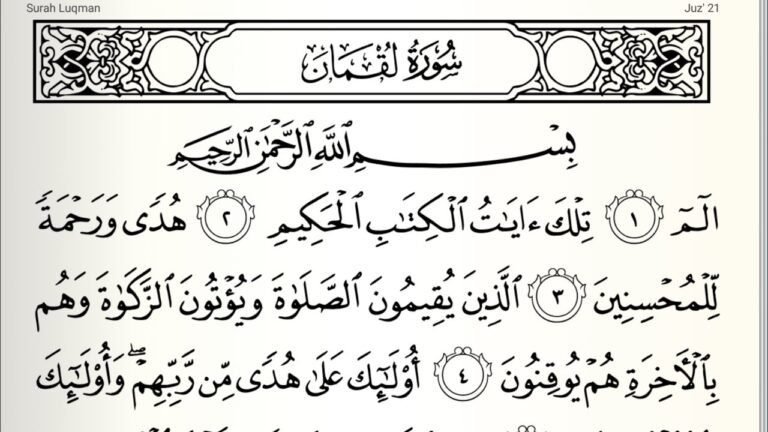 Surah Luqman
Juz' 21
سُورَةُ لُقۡمَانَ
بِسۡمِ ٱللَّهِ ٱلرَّحۡمَٰنِ ٱلرَّحِيمِ
الٓمٓ ١ تِلۡكَ ءَايَٰتُ ٱلۡكِتَٰبِ ٱلۡحَكِيمِ ٢ هُدٗى وَرَحۡمَةٗ
لِّلۡمُحۡسِنِينَ ٣ ٱلَّذِينَ يُقِيمُونَ ٱلصَّلَوٰةَ وَيُؤۡتُونَ ٱلزَّكَوٰةَ وَهُم
بِٱلۡأٓخِرَةِ هُمۡ يُوقِنُونَ ٤ أُوْلَٰٓئِكَ عَلَىٰ هُدٗى مِّن رَّبِّهِمۡۖ وَأُوْلَٰٓئِكَ